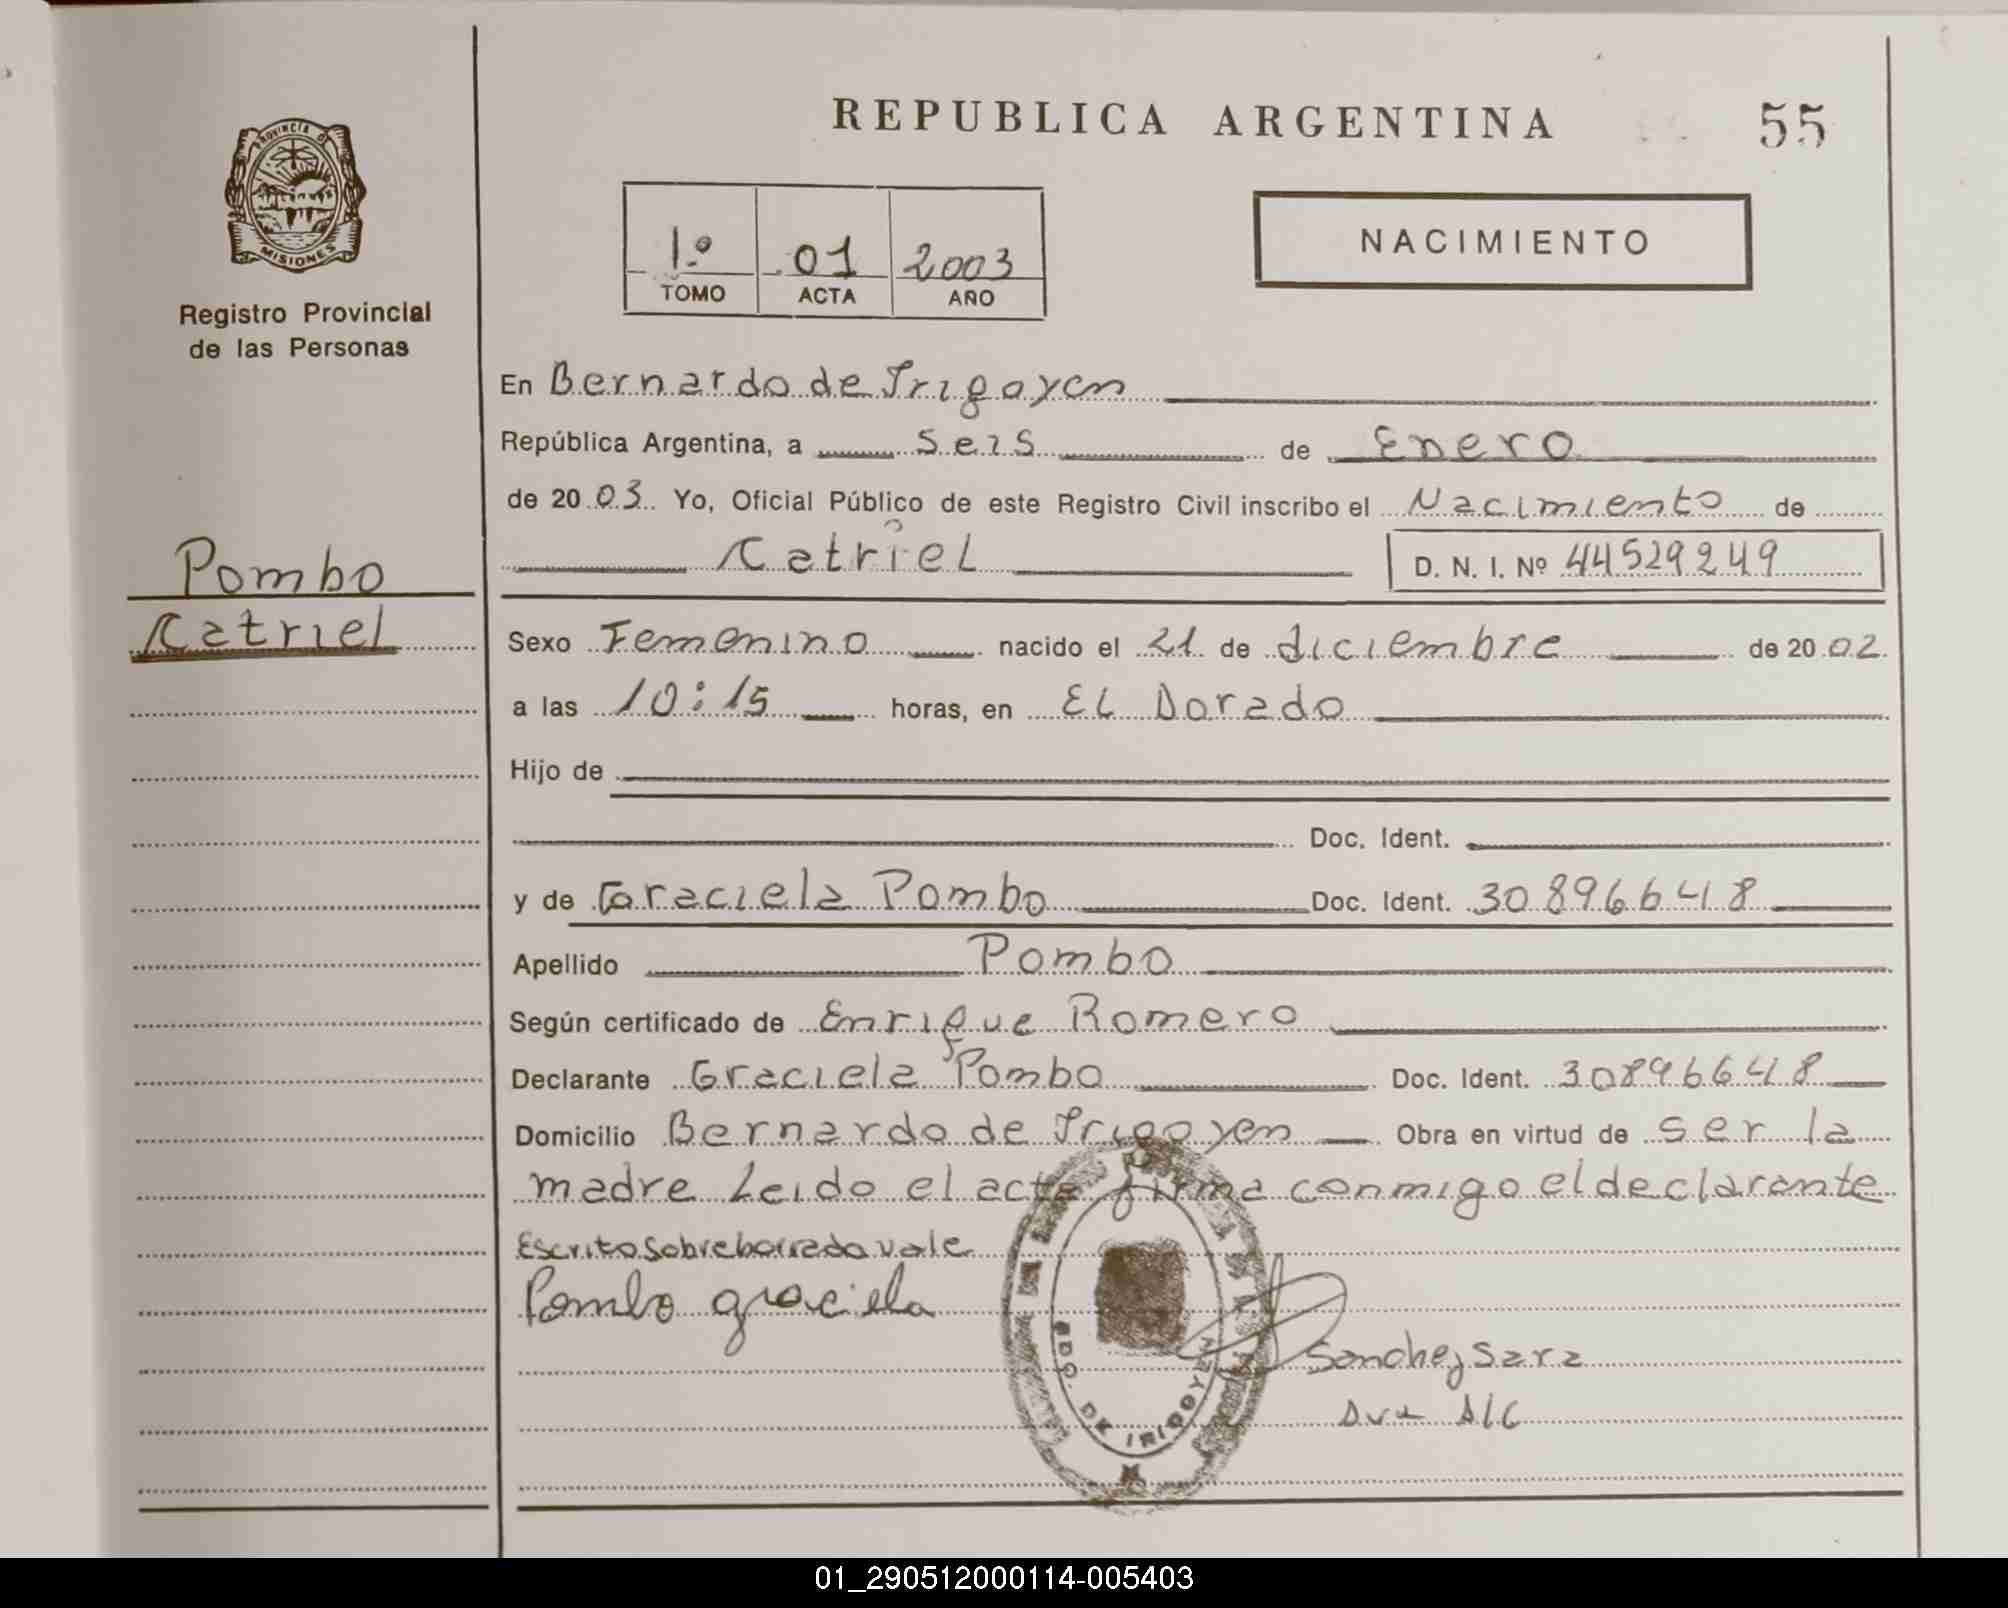 REPUBLICA ARGENTINA 55
PROVINCIA DE
MISIONES
Registro Provincial
de las Personas
1º 01 2003
TOMO ACTA AÑO
NACIMIENTO
En Bernardo de Irigoyen
República Argentina, a Seis de Enero
de 2003 Yo, Oficial Público de este Registro Civil inscribo el Nacimiento de
Katriel D. N. I. Nº 44529249
Pombo
Katriel
Sexo Femenino nacido el 21 de diciembre de 2002
a las 10:15 horas, en EL Dorado
Hijo de
Doc. Ident.
y de Graciela Pombo Doc. Ident. 30896648
Apellido Pombo
Según certificado de Enrique Romero
Declarante Graciela Pombo Doc. Ident. 30896648
Domicilio Bernardo de Irigoyen Obra en virtud de ser la
madre Leido el acta firma conmigo el declarante
Escrito sobre borrado vale
Pombo graciela
Sanchez Sara
BDO. DE IRIGOYEN
01_290512000114-005403